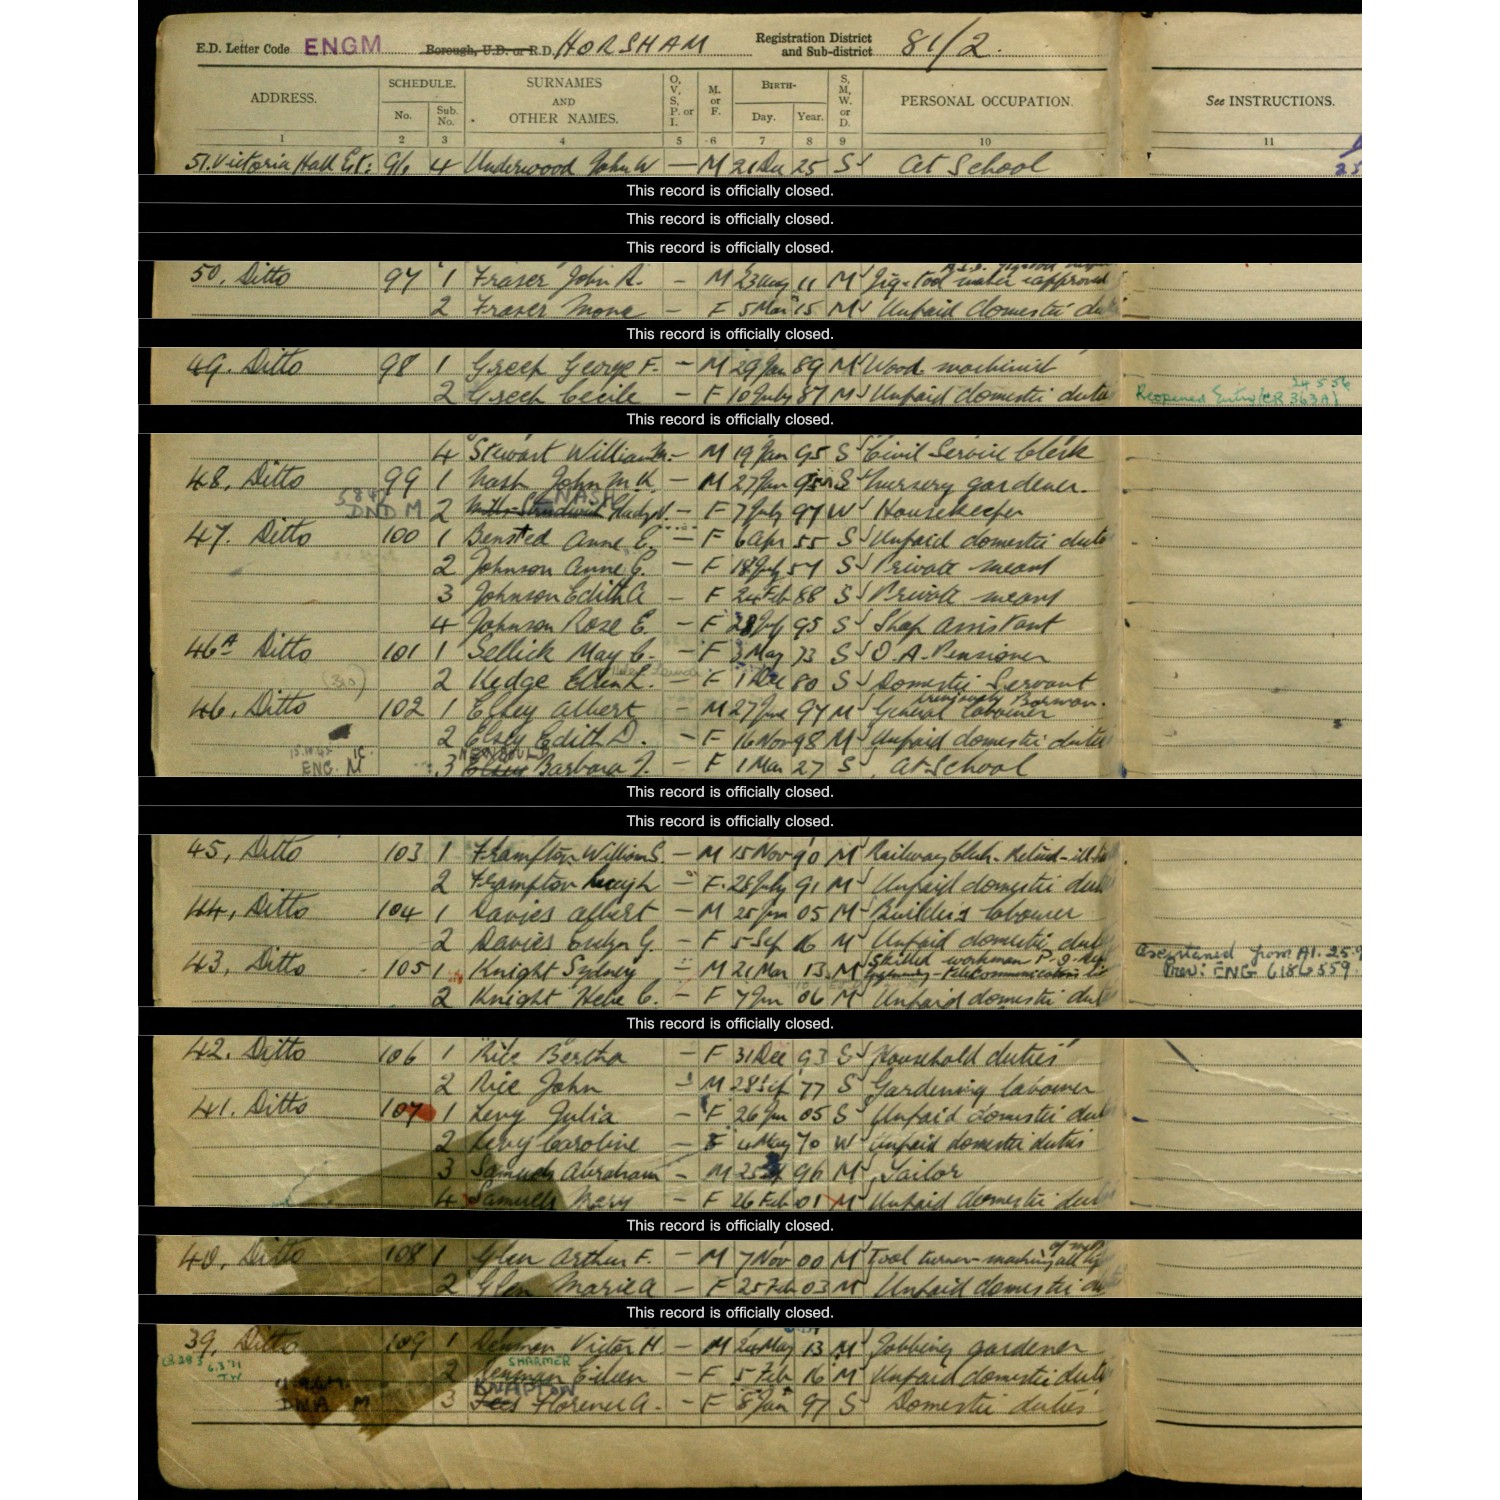 E.D. Letter Code ENGM Borough, U.D. or R.D. HORSHAM Registration District and Sub-district 81/2.
ADDRESS. SCHEDULE. No. Sub. No. SURNAMES AND OTHER NAMES. O, V, S, P. or I. M. or F. BIRTH- Day. Year. S, M, W. or D. PERSONAL OCCUPATION. See INSTRUCTIONS.
1 2 3 4 5 6 7 8 9 10 11
51. Victoria Hall 4 Underwood John W — M 21 Dec 25 S At School
This record is officially closed.
This record is officially closed.
This record is officially closed.
50, Ditto 97 1 Fraser John R. - M 23 Aug 11 M Jig & Tool maker
2 Fraser Mona - F 5 Mar 15 M Unpaid domestic
This record is officially closed.
49. Ditto 98 1 Greef George F. - M 29 Jan 89 M Wood machinist
2 Greef Cecile - F 10 July 87 M Unpaid domestic duties Reopened Entry
This record is officially closed.
4 Stewart William - M 19 Jan 95 S Civil Service Clerk
48, Ditto 99 1 Nash John M. - M 27 Jan 95 S Nursery gardener.
DND M 2 NASH - F 7 July 97 W Housekeeper
47. Ditto 100 1 Bensted Anne E. - F 6 Apr 55 S Unpaid domestic
2 Johnson Anne - F 18 July 57 S Private means
3 Johnson Edith A - F 24 Feb 88 S Private means
4 Johnson Rose E. - F 28 95 S Shop Assistant
46A Ditto 101 1 Sellick May C. - F 3 May 73 S O.A. Pensioner
2 Hedge - F 1 Dec 80 S Domestic Servant
46, Ditto 102 1 Elsey Albert - M 27 June 97 M General labourer previously Barman.
2 Elsey Edith D. - F 16 Nov 98 M Unpaid domestic duties
ENG. M 3 Barbara J. - F 1 Mar 27 S At School
This record is officially closed.
This record is officially closed.
45, Ditto 103 1 Frampton William S. - M 15 Nov 90 M Railway Clerk - Retired
2 Frampton - F. 28 July 91 M Unpaid domestic
44, Ditto 104 1 Davies Albert - M 25 Jan 05 M Builder's labourer
2 Davies G. - F 5 Sep 16 M Unpaid domestic
43, Ditto 105 1 Knight Sydney - M 21 Mar 13 M Skilled workman P.O. Ascertained from
2 Knight C. - F 7 Jan 06 M Unpaid domestic Prev: ENG 6186559
This record is officially closed.
42. Ditto 106 1 Rice Bertha - F 31 Dec 93 S Household duties
2 Rice John - M 28 Sep 77 S Gardening labourer
41. Ditto 107 1 Levy Julia - F 26 Jan 05 S Unpaid domestic
2 Levy Caroline - F 4 May 70 W Unpaid domestic duties
3 Samuels Abraham - M 25 96 M Tailor
4 Samuels Mary - F 26 Feb 01 M Unpaid domestic
This record is officially closed.
40, Ditto 108 1 Glen Arthur F. - M 7 Nov 00 M Tool turner
2 Glen Marie A - F 25 Feb 03 M Unpaid domestic
This record is officially closed.
39, Ditto 109 1 Denman Victor H. - M 24 May 13 M Jobbing gardener
2 Denman Eileen SHARMER - F 5 Feb 16 M Unpaid domestic
DNA M 3 KNAPTON Florence A. - F 8 Jan 97 S Domestic duties